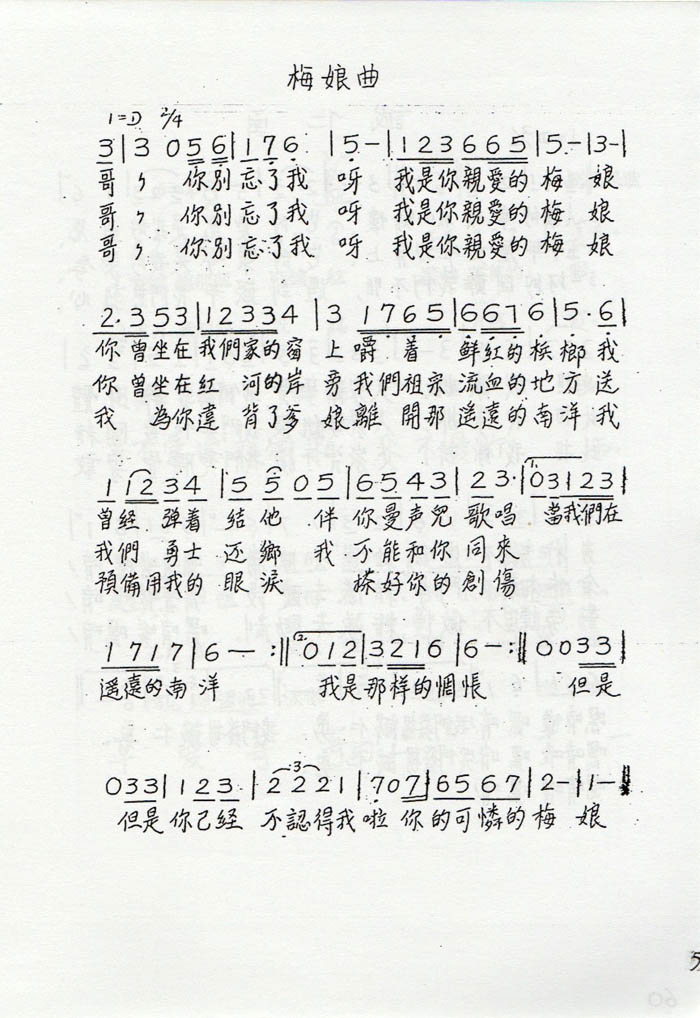 梅娘曲
1=D 2/4
3|3 056|176 |5-|123665|5-|3-|
哥々 你別忘了我 呀 我是你親愛的 梅 娘
哥々 你別忘了我 呀 我是你親愛的 梅 娘
哥々 你別忘了我 呀 我是你親愛的 梅 娘
2.353|12334 |3 1765|6676|5.6|
你曾坐在我們家的窗 上嚼着 鮮紅的檳榔我
你曾坐在紅 河的岸 旁我們祖宗流血的地方送
我 為你違 背了爹 娘離 開那遥遠的南洋我
11234 |55 05|6543|23.|1.03123|
曾経 弹着 结他 伴 你曼声兒 歌唱 當我們在
我們 勇士 还鄉 我 不能和你 同来
預備用我的 眼淚 搽好你的創傷
1717|6-:||2.012|3216|6-:||0033|
遥遠的南洋 我是那样的惆悵 但是
033|123|2221|707|6567|2-|1-||
但是你已经 不認得我啦 你的可憐的梅 娘
60